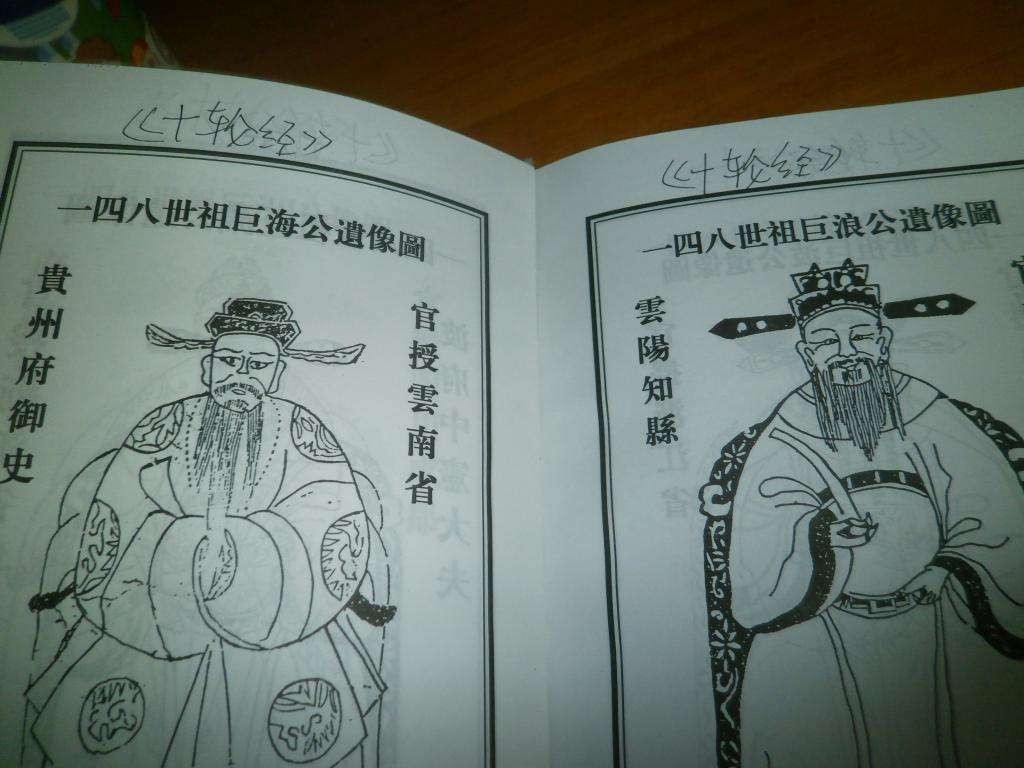 《十轮经》
一四八世祖巨海公遺像圖
官授雲南省
貴州府御史
《十轮经》
一四八世祖巨浪公遺像圖
雲陽知縣